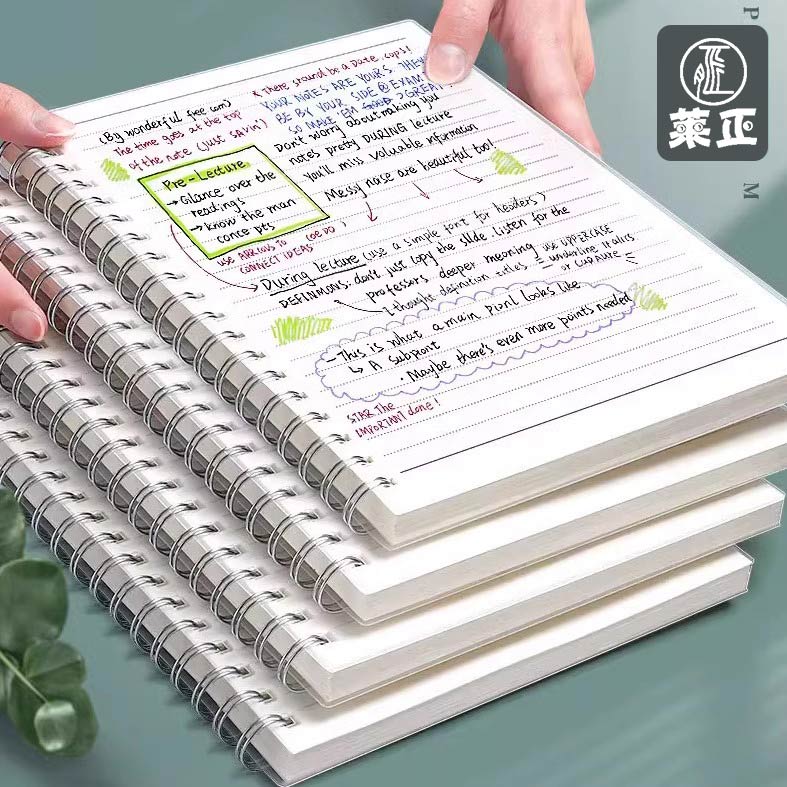 P
M
莱正
* There stound be a Date .cops!
(By wonderful free com)
YOUR NOTES ARE YOUR'S. THEY
The time goes at the top
BE BY YOUR SIDE @ EXAM
of the note (Just savin')
SO MAKE 'EM GREAT!
Don't worry about making you
notes pretty DURING lecture
You'll miss valuable information
Messy noise are beautiful too!
Pre-Lecture
→Glance over the
readings
→know the man
conce pts
use ARROWS TO
CONNECT IDEAS
During lecture (use a simple font for headers)
DEFINMONS: don't just copy the slide listen for the
professors deeper meaning
I thought definition titles
use UPPERCASE
underline Italics
or
- This is what a main pionl looks like
↳ A Subpont
· Maybe there's even more points needed
STAR The
IMPORTANT done!